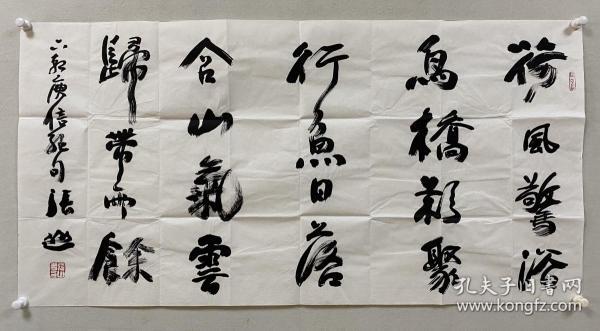 荷風驚浴
鳥橋影聚
行魚日落
含山氣雲
歸帶雨餘
六朝庾信句張
孔夫子旧书网
www.kongfz.com